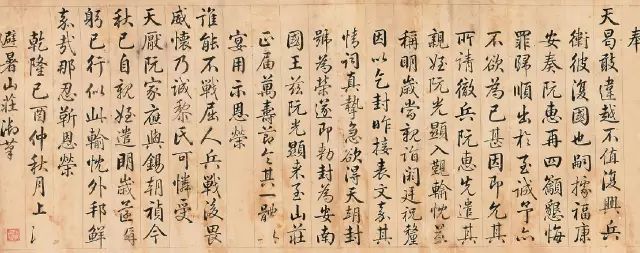 奉
天曷敢違越不值復興兵
衛彼復國也嗣據福康
安奏阮惠再四籲懇悔
罪歸順出於至誠予亦
不欲為已甚因即允其
所請徹兵阮惠先遣其
親姪阮光顯入覲輸忱並
稱明歲當親詣闕廷祝釐
因以乞封昨接表文其
情詞真摯急欲得天朝封
號為榮遂即勅封為安南
國王茲阮光顯來至山莊
正屆萬壽節令其一體
宴用示恩榮
誰能不戰屈人兵戰後畏
威懷乃誠黎氏可憐受
天厭阮家應與錫朝禎今
秋已自親姪遣明歲還稱
躬已行似此輸忱外邦鮮
嘉哉那忍靳恩榮
乾隆己酉仲秋月上
避暑山莊御筆